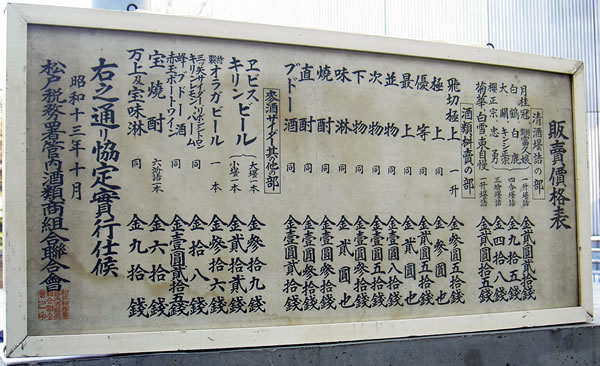 販賣價格表
清酒壜詰の部
月桂冠 富久娘 一升壜詰 金貳圓貳拾五錢
白鶴 白鹿
大關 キンシ正宗 四合壜詰 金九拾五錢
櫻正宗 忠勇 金四拾八錢
菊華 白雪 東自慢 一升壜詰 金貳圓拾錢
酒類秤賣の部
飛切極上 一升 金參圓五拾錢
極上 同 金參圓也
優等 同 金貳圓五拾錢
最上 同 金貳圓也
並物 同 金壹圓八拾錢
次物 同 金壹圓五拾錢
下物 同 金壹圓參拾錢
味淋 同 金貳圓也
燒酎 同 金壹圓參拾錢
直酎 同 金壹圓貳拾錢
ブドー酒 同 金壹圓貳拾錢
麥酒サイダー其の他の部
ヱビスビール 大壜一本 金參拾九錢
キリンビール 小壜一本 金貳拾貳錢
特製オラガビール 一本 金參拾六錢
三ツ矢サイダー リボンシトロン
キリンレモン 同 金拾八錢
蜂ブドー酒
赤玉ポートワイン 同 金壹圓貳拾五錢
宝燒酎 金六拾錢
万上及宝味淋 同 金九拾錢
右之通り協定實行仕候
昭和十三年十月
松戸税務署管内酒類商組合聯合會